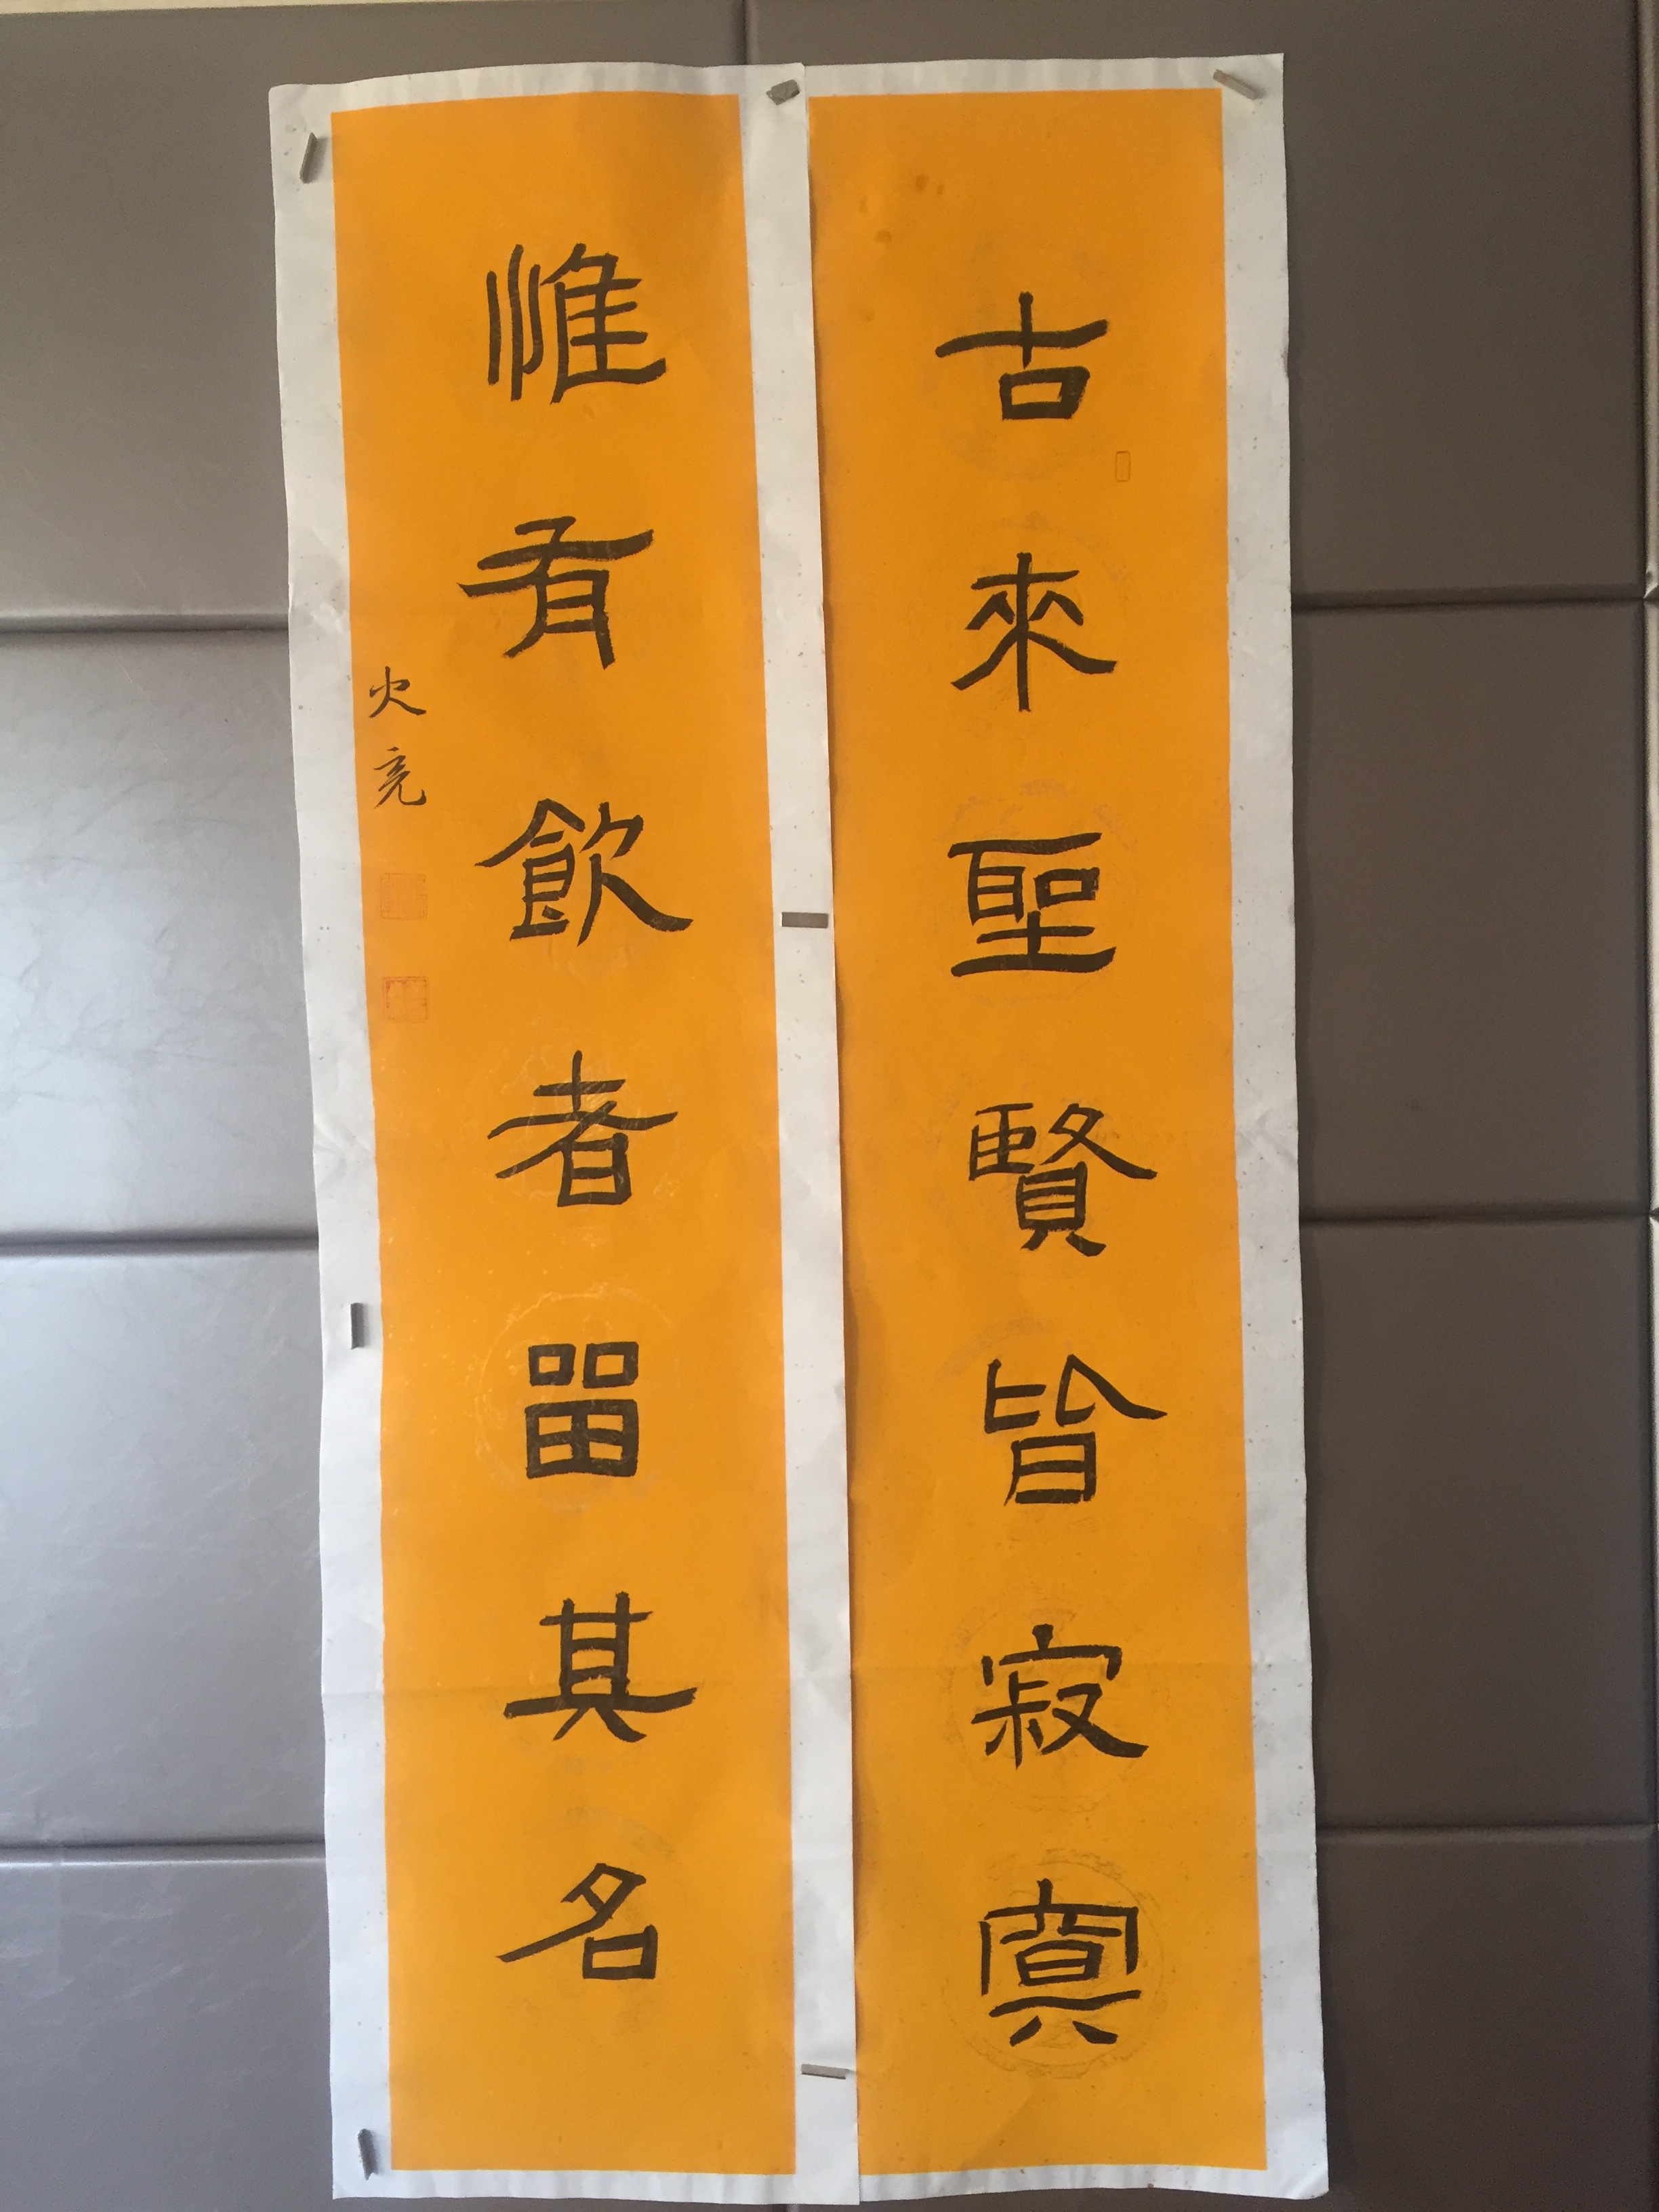 古來聖賢皆寂寞
惟有飲者畱其名
火亮